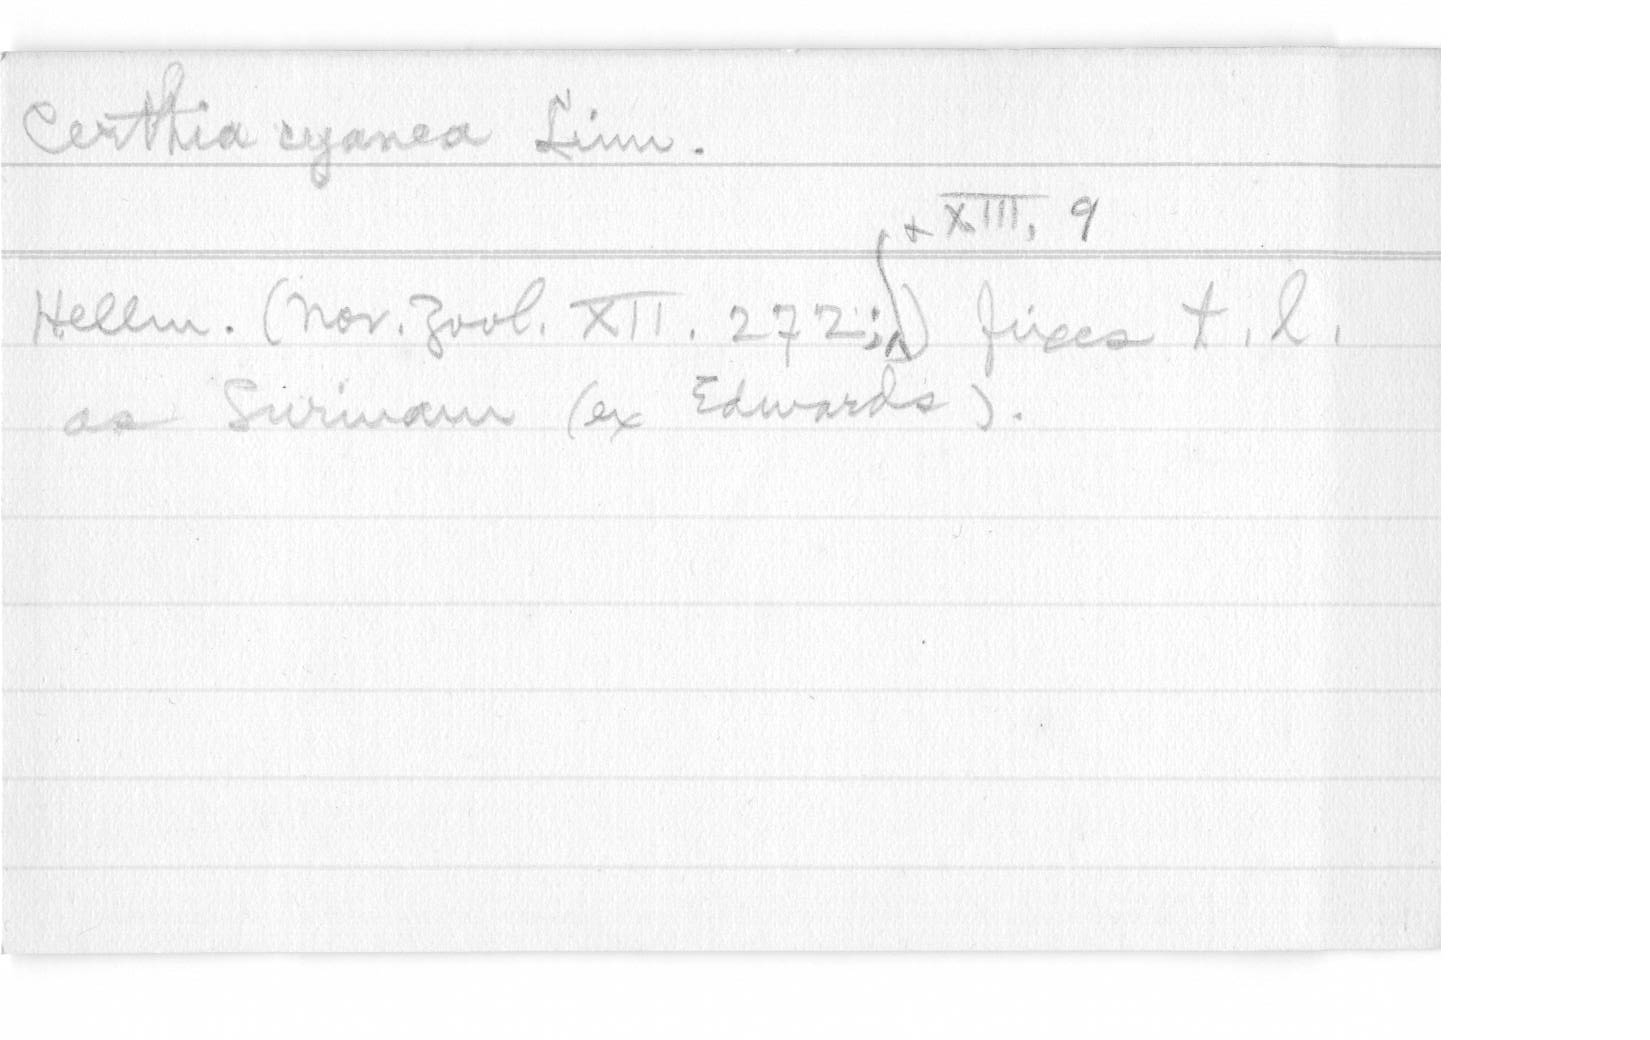 Certhia cyanea Linn.
+ XIII, 9
Hellm. (Nov. Zool. XII. 272;) fixes t. l.
as Surinam (ex Edwards).